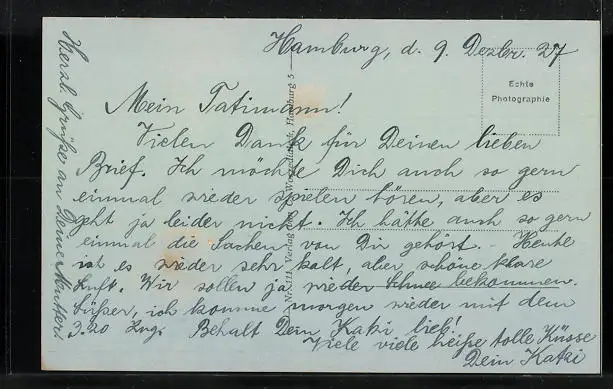 Hamburg, d. 9. Dezbr. 27
Echte
Photographie
Mein Tatimann!
Vielen Dank für Deinen lieben
Brief. Ich möchte Dich auch so gern
einmal wieder spielen hören, aber es
geht ja leider nicht. Ich hätte auch so gern
einmal die Sachen von Dir gehört. - Heute
ist es wieder sehr kalt, aber schöne klare
Luft. Wir sollen ja wieder Schnee bekommen.
Süßer, ich komme morgen wieder mit dem
3.20 Zug. Behalt Dein Katzi lieb!
Viele viele heiße tolle Küsse
Dein Katzi
Herzl. Grüße an Deine Mutter!
Nr. 111 Verlag Hamburg 5